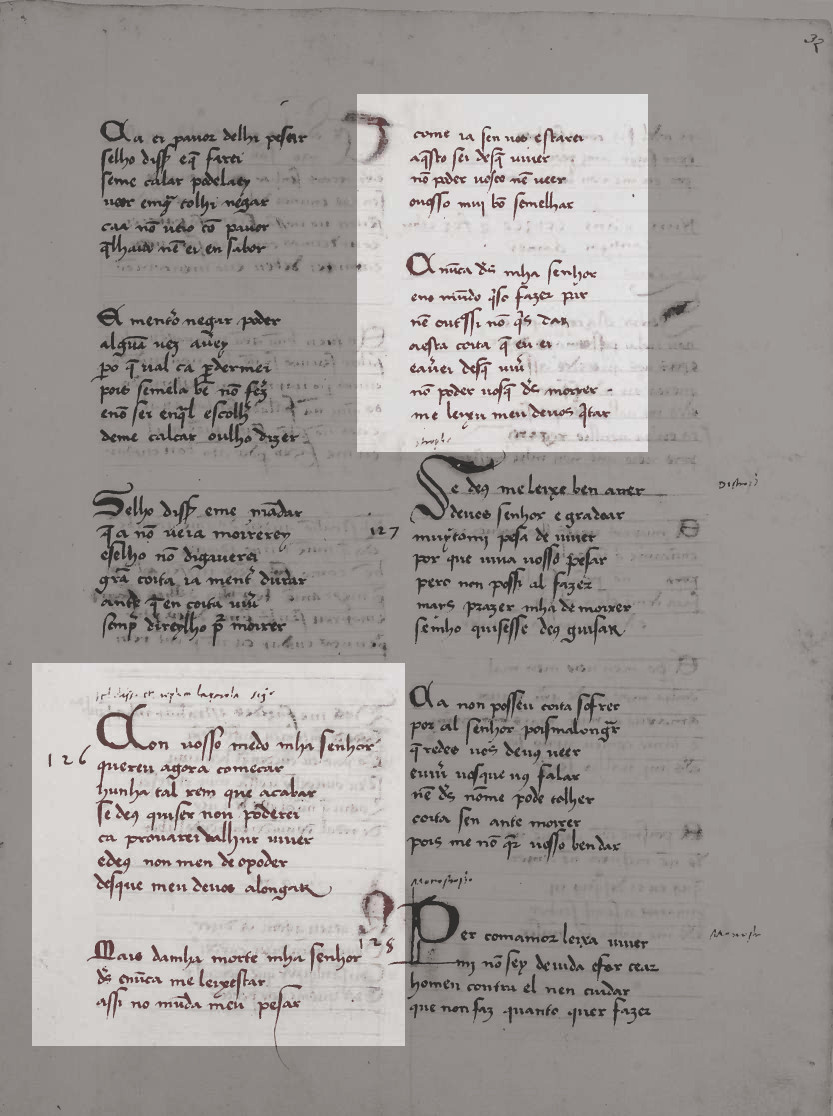 Ca ei pauor delhi pesar
selho diss' e q̄ farei
seme calar podelaey
ueer
caa nō ueio cō pauor
q̄lhaura nē ei en sabor
E mentr̄ negar poder
algūa uez au'ey
ꝑo q̄ ual ca ꝑdermei
pois semela bē nō fez
enō sei enq̄l escolh'
deme calar oulho dizer
Selho diss' eme mādar
q̄a nō ueia moirerey
eselho nō digauerei
grā coita ia ment' durar
ante q̄ en coita uiu'
semp' direylho ꝑ moirer
126
Con uosso medo mha senhor
quereu agora começar
hunha tal rem que acabar
se deus quiser non poderei
ca prouarei dalhur uiuer
edeus non men de opoder
desque meu deuos alongar
Mais damha morte mha senhor
d̄s enūca me leixestar
assi no mūda meu pesar
come ia sen uos estarei
aq̄sto sei desq̄ uiuer
nō poder uosco nē ueer
ouosso mui bō semelhar
Ca nūca d̄s mha senhor
eno mūdo q̄so fazer par
nē outssi nō q̄s dar
aesta coita q̄ eu ei
eau'ei desq̄ uiū
nō poder uosq̄ d̄s moirer
me leyxu meu deuos q̄tar
127
Se deus me leixe ben auer
deuos senhor e gradoar
muytomi pesa de uiuer
por que uiua uosso pesar
pero non possi al fazer
mais prazer mha de moirer
senho quisesse deus guisar
Ca non posseu coita sofrer
por al senhor poismalongar
q̄redes uos deuus ueer
euiū uosque uus falar
nē d̄s nōme pode tolher
coita sen ante moirer
pois me nō q̄r uosso bendar
128
Per comamor leixa uiuer
mi nō sey deuida
homen contra el nen cuidar
que nonfaz quanto quer fazer